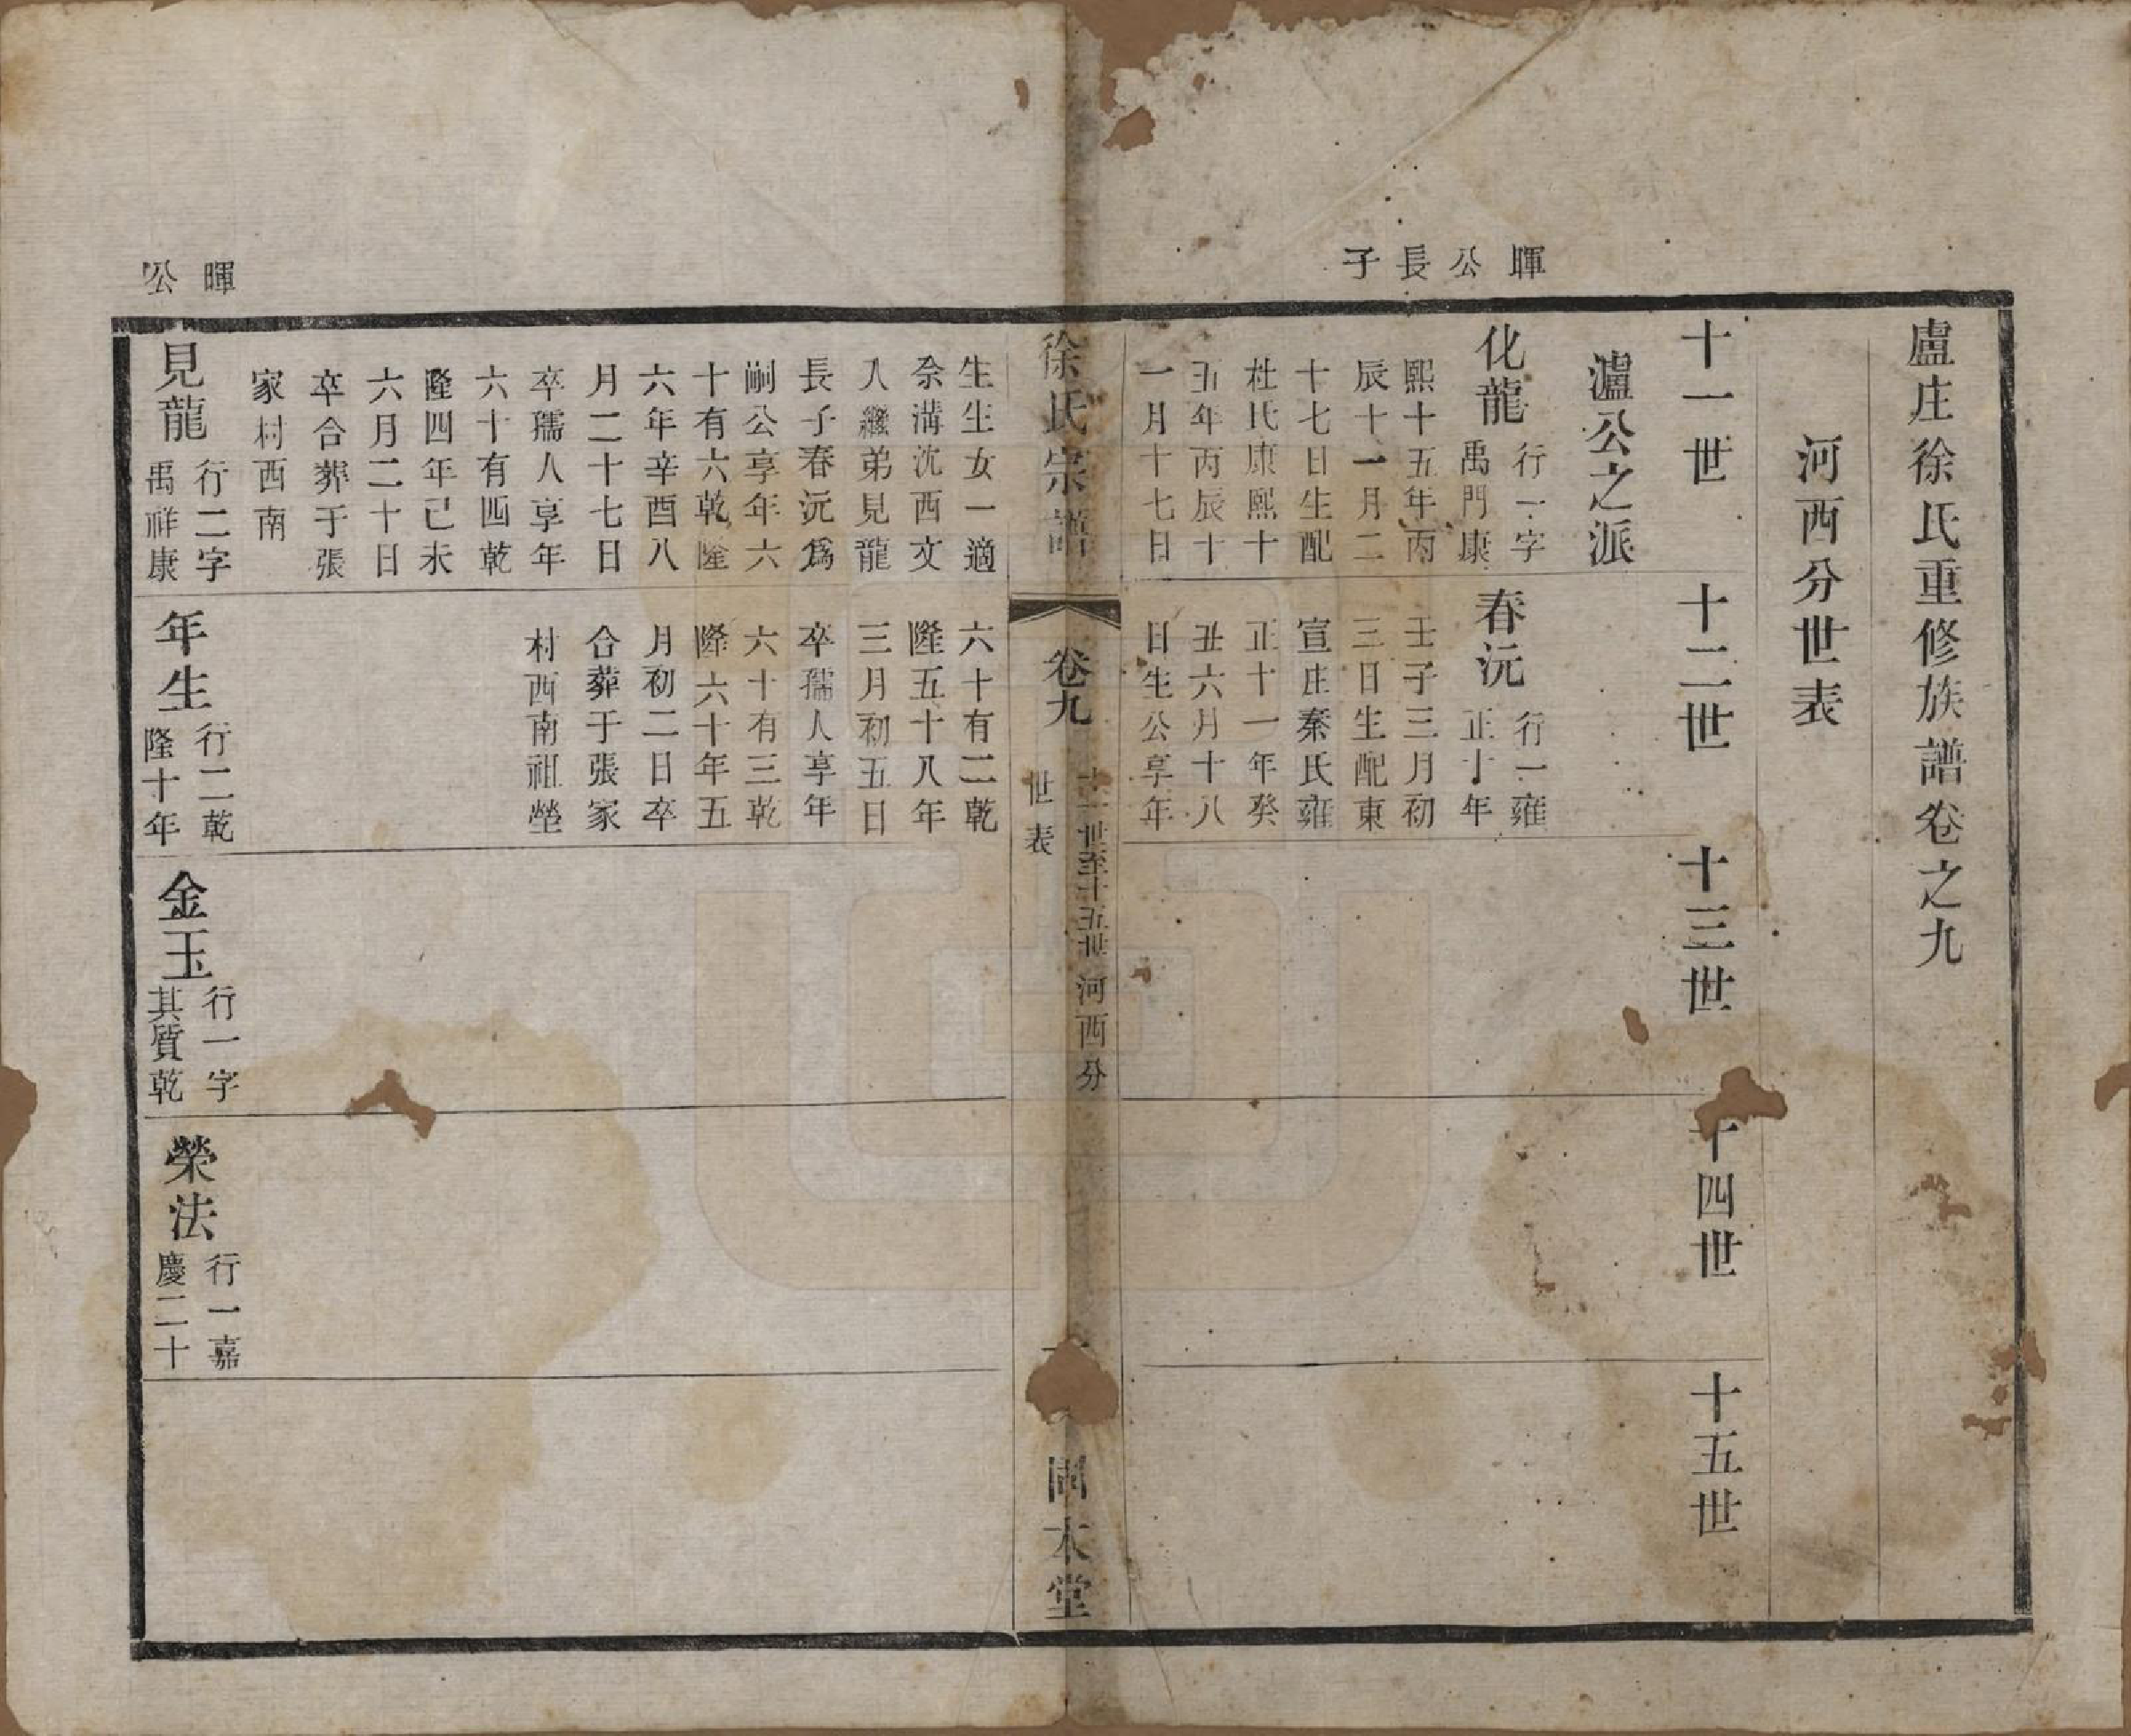 盧庄徐氏重修族譜卷之九
河西分世表
十一世
十二世
十三世
十四世
十五世
瀘公之派
暉公長子
化龍
行一字
禹門康
熙十五年丙
辰十一月二
十七日生配
杜氏康熙十
五年丙辰十
一月十七日
春沅
行一雍
正十年
壬子三月初
三日生配東
宣庄秦氏雍
正十一年癸
丑六月十八
日生公享年
徐氏宗譜
卷九
十一世至十五世河西分
世表
一
固本堂
生生女一適
佘溝沈西文
入繼弟見龍
長子春沅爲
嗣公享年六
十有六乾隆
六年辛酉八
月二十七日
卒孺人享年
六十有四乾
隆四年己未
六月二十日
卒合葬于張
家村西南
六十有二乾
隆五十八年
三月初五日
卒孺人享年
六十有三乾
隆六十年五
月初二日卒
合葬于張家
村西南祖塋
暉公
見龍
行二字
禹祥康
年生
行二乾
隆十年
金玉
行一字
其質乾
榮法
行一嘉
慶二十